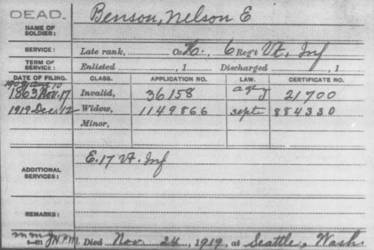 DEAD.
NAME OF SOLDIER: Benson, Nelson E
SERVICE: Late rank, Co. K. 6 Reg't Vt. Inf
TERM OF SERVICE: Enlisted , 1 Discharged , 1
DATE OF FILING. CLASS. APPLICATION NO. LAW. CERTIFICATE NO.
1863 Nov. 17 Invalid, 36158 21700
1919 Dec 12 Widow, 1149866 Sept 884330
Minor,
ADDITIONAL SERVICES: E. 17 Vt. Inf
REMARKS:
Died Nov. 24, 1919, at Seattle, Wash.